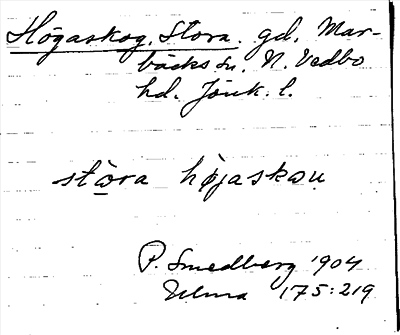 Högaskog, Stora. gd, Mar-
bäcks sn, N. Vedbo
hd. Jönk. l.
stora höjaskou
P. Smedberg 1904
Ulma 175:219